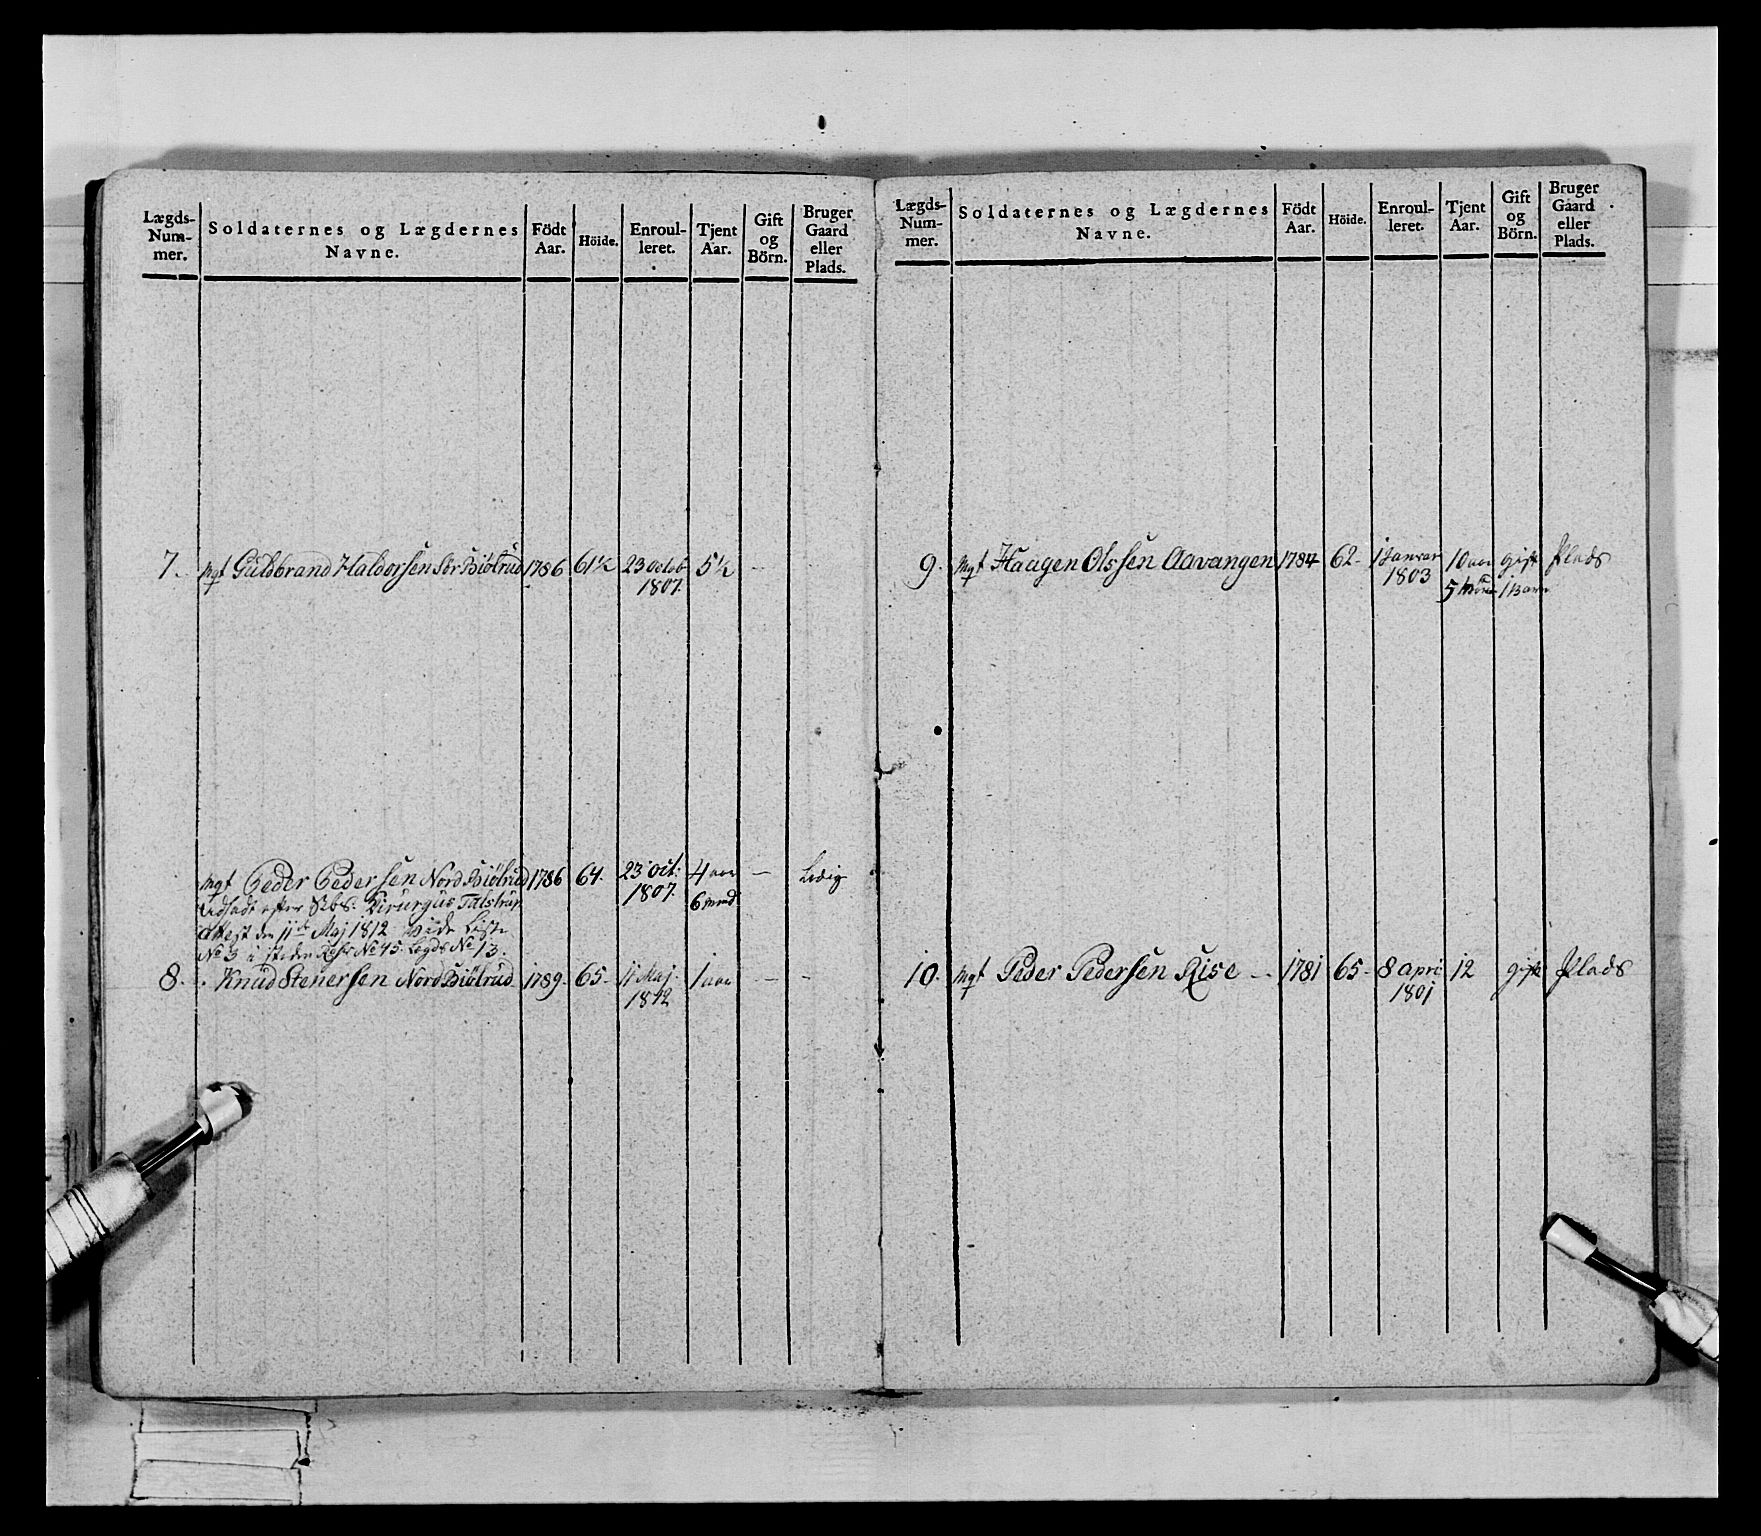 Lægds-Num-mer. Soldaternes og Lægdernes Navne. Födt Aar. Höide. Enroul-leret. Tjent Aar. Gift og Börn. Bruger Gaard eller Plads.
7. Mqt Guldbrand Haldorsen Sör Biölrud 1786 61½ 23 octob 1807. 5½ —
Mqt Peder Pedersen Nord Biölrud 1786 64. 23 oct: 1807. 4 aar 6 mnd — Ledig
Udsadt efter Chirurgus
attest den 11te Maj 1812 Vide Liste
No 3 i steden No 45. Legds No 13.
8. Knud Stenersen Nord Biölrud 1789. 65. 11 Maj 1812 1 aar — —
Lægds-Num-mer. Soldaternes og Lægdernes Navne. Födt Aar. Höide. Enroul-leret. Tjent Aar. Gift og Börn. Bruger Gaard eller Plads.
9. Mqt Haagen Olssen Aavangen 1784 62. 1 Januar 1803 10 aar 5 gift 1 Barn Plads
10. Mqt Peder Pedersen Rise — 1781 65. 8 apri 1801 12 gift Plads